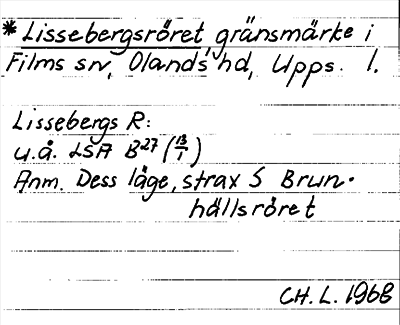 * Lissebergsröret gränsmärke i
Films sn, Olands hd, Upps. l.
Lissebergs R:
u.å. LSA B27 (13/1)
Anm. Dess läge, strax S Brun-
hällsröret
CH. L. 1968